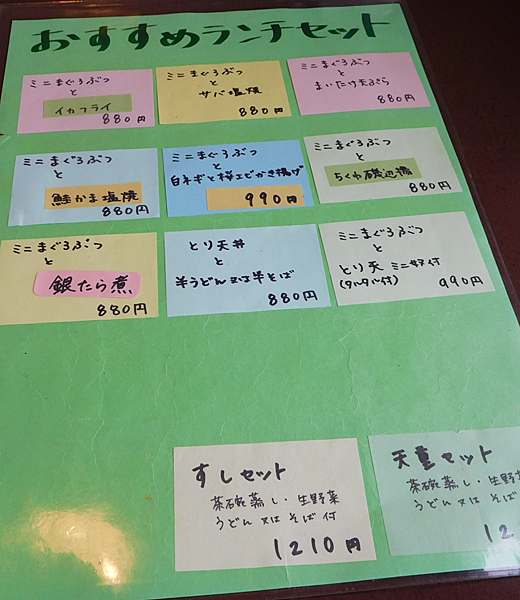 おすすめランチセット
ミニまぐろぶつ
と
イカフライ
880円
ミニまぐろぶつ
と
サバ塩焼
880円
ミニまぐろぶつ
と
まいたけ天ぷら
880円
ミニまぐろぶつ
と
鮭かま塩焼
880円
ミニまぐろぶつ
と
白ネギと桜エビかき揚げ
990円
ミニまぐろぶつ
と
ちくわ磯辺揚
880円
ミニまぐろぶつ
と
銀たら煮
880円
とり天丼
と
半うどん又は半そば
880円
ミニまぐろぶつ
と
とり天 ミニ奴付
(タルタル付)
990円
すしセット
茶碗蒸し・生野菜
うどん又はそば付
1210円
天重セット
茶碗蒸し・生野菜
うどん又はそば
12